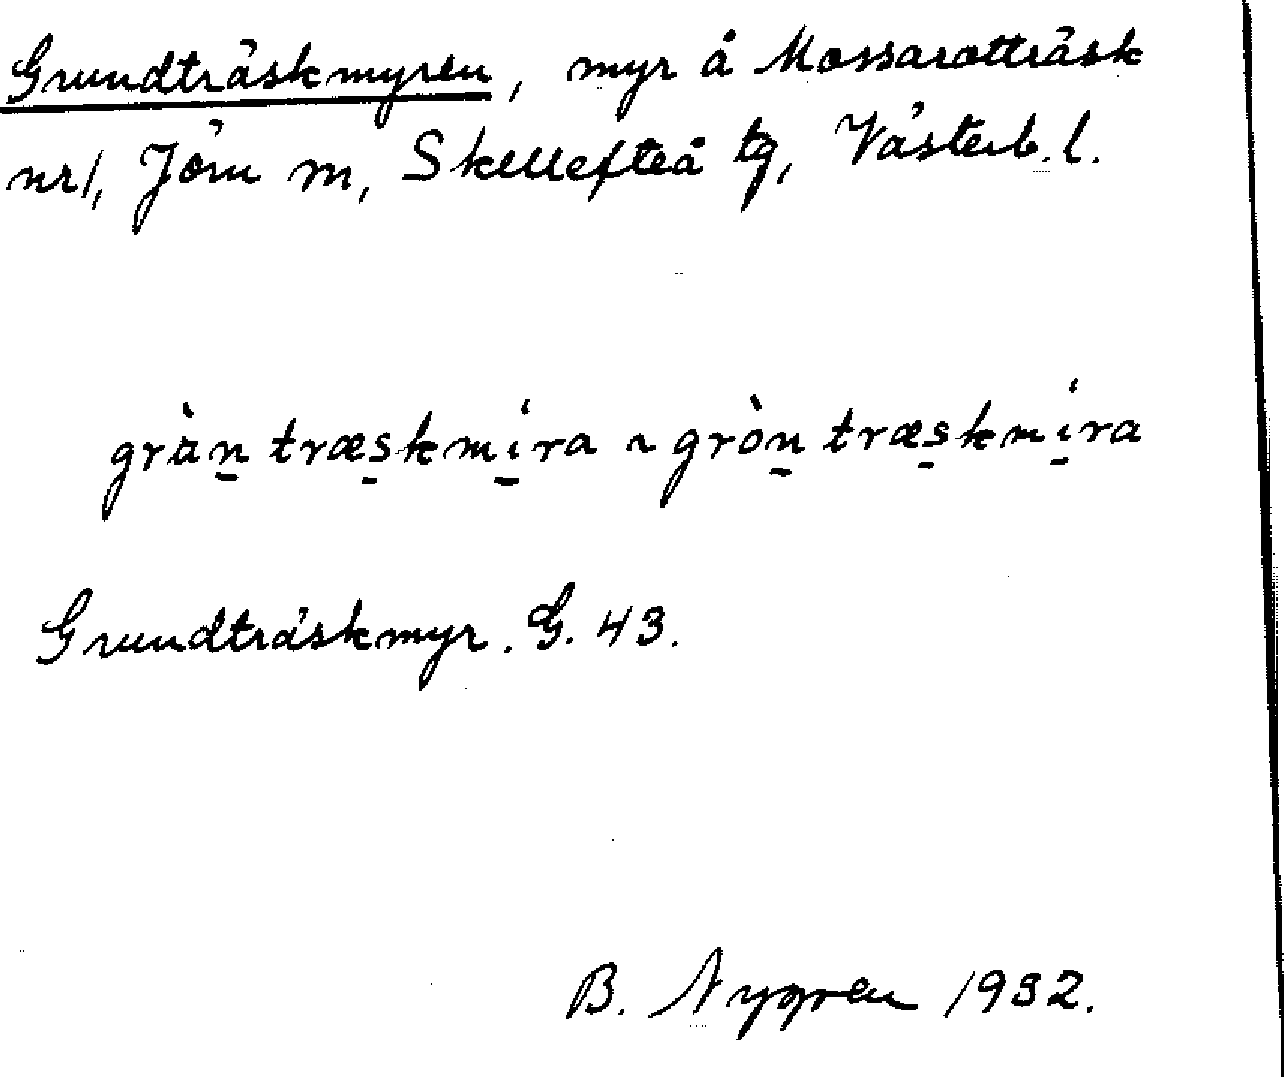 Grundträskmyren, myr å Mossarotträsk
nr 1, Jörn m, Skellefteå tg, Västerb. l.
gràn træskmíra ~ gròn træskmíra
Grundträskmyr. G. 43.
B. Nygren 1932.